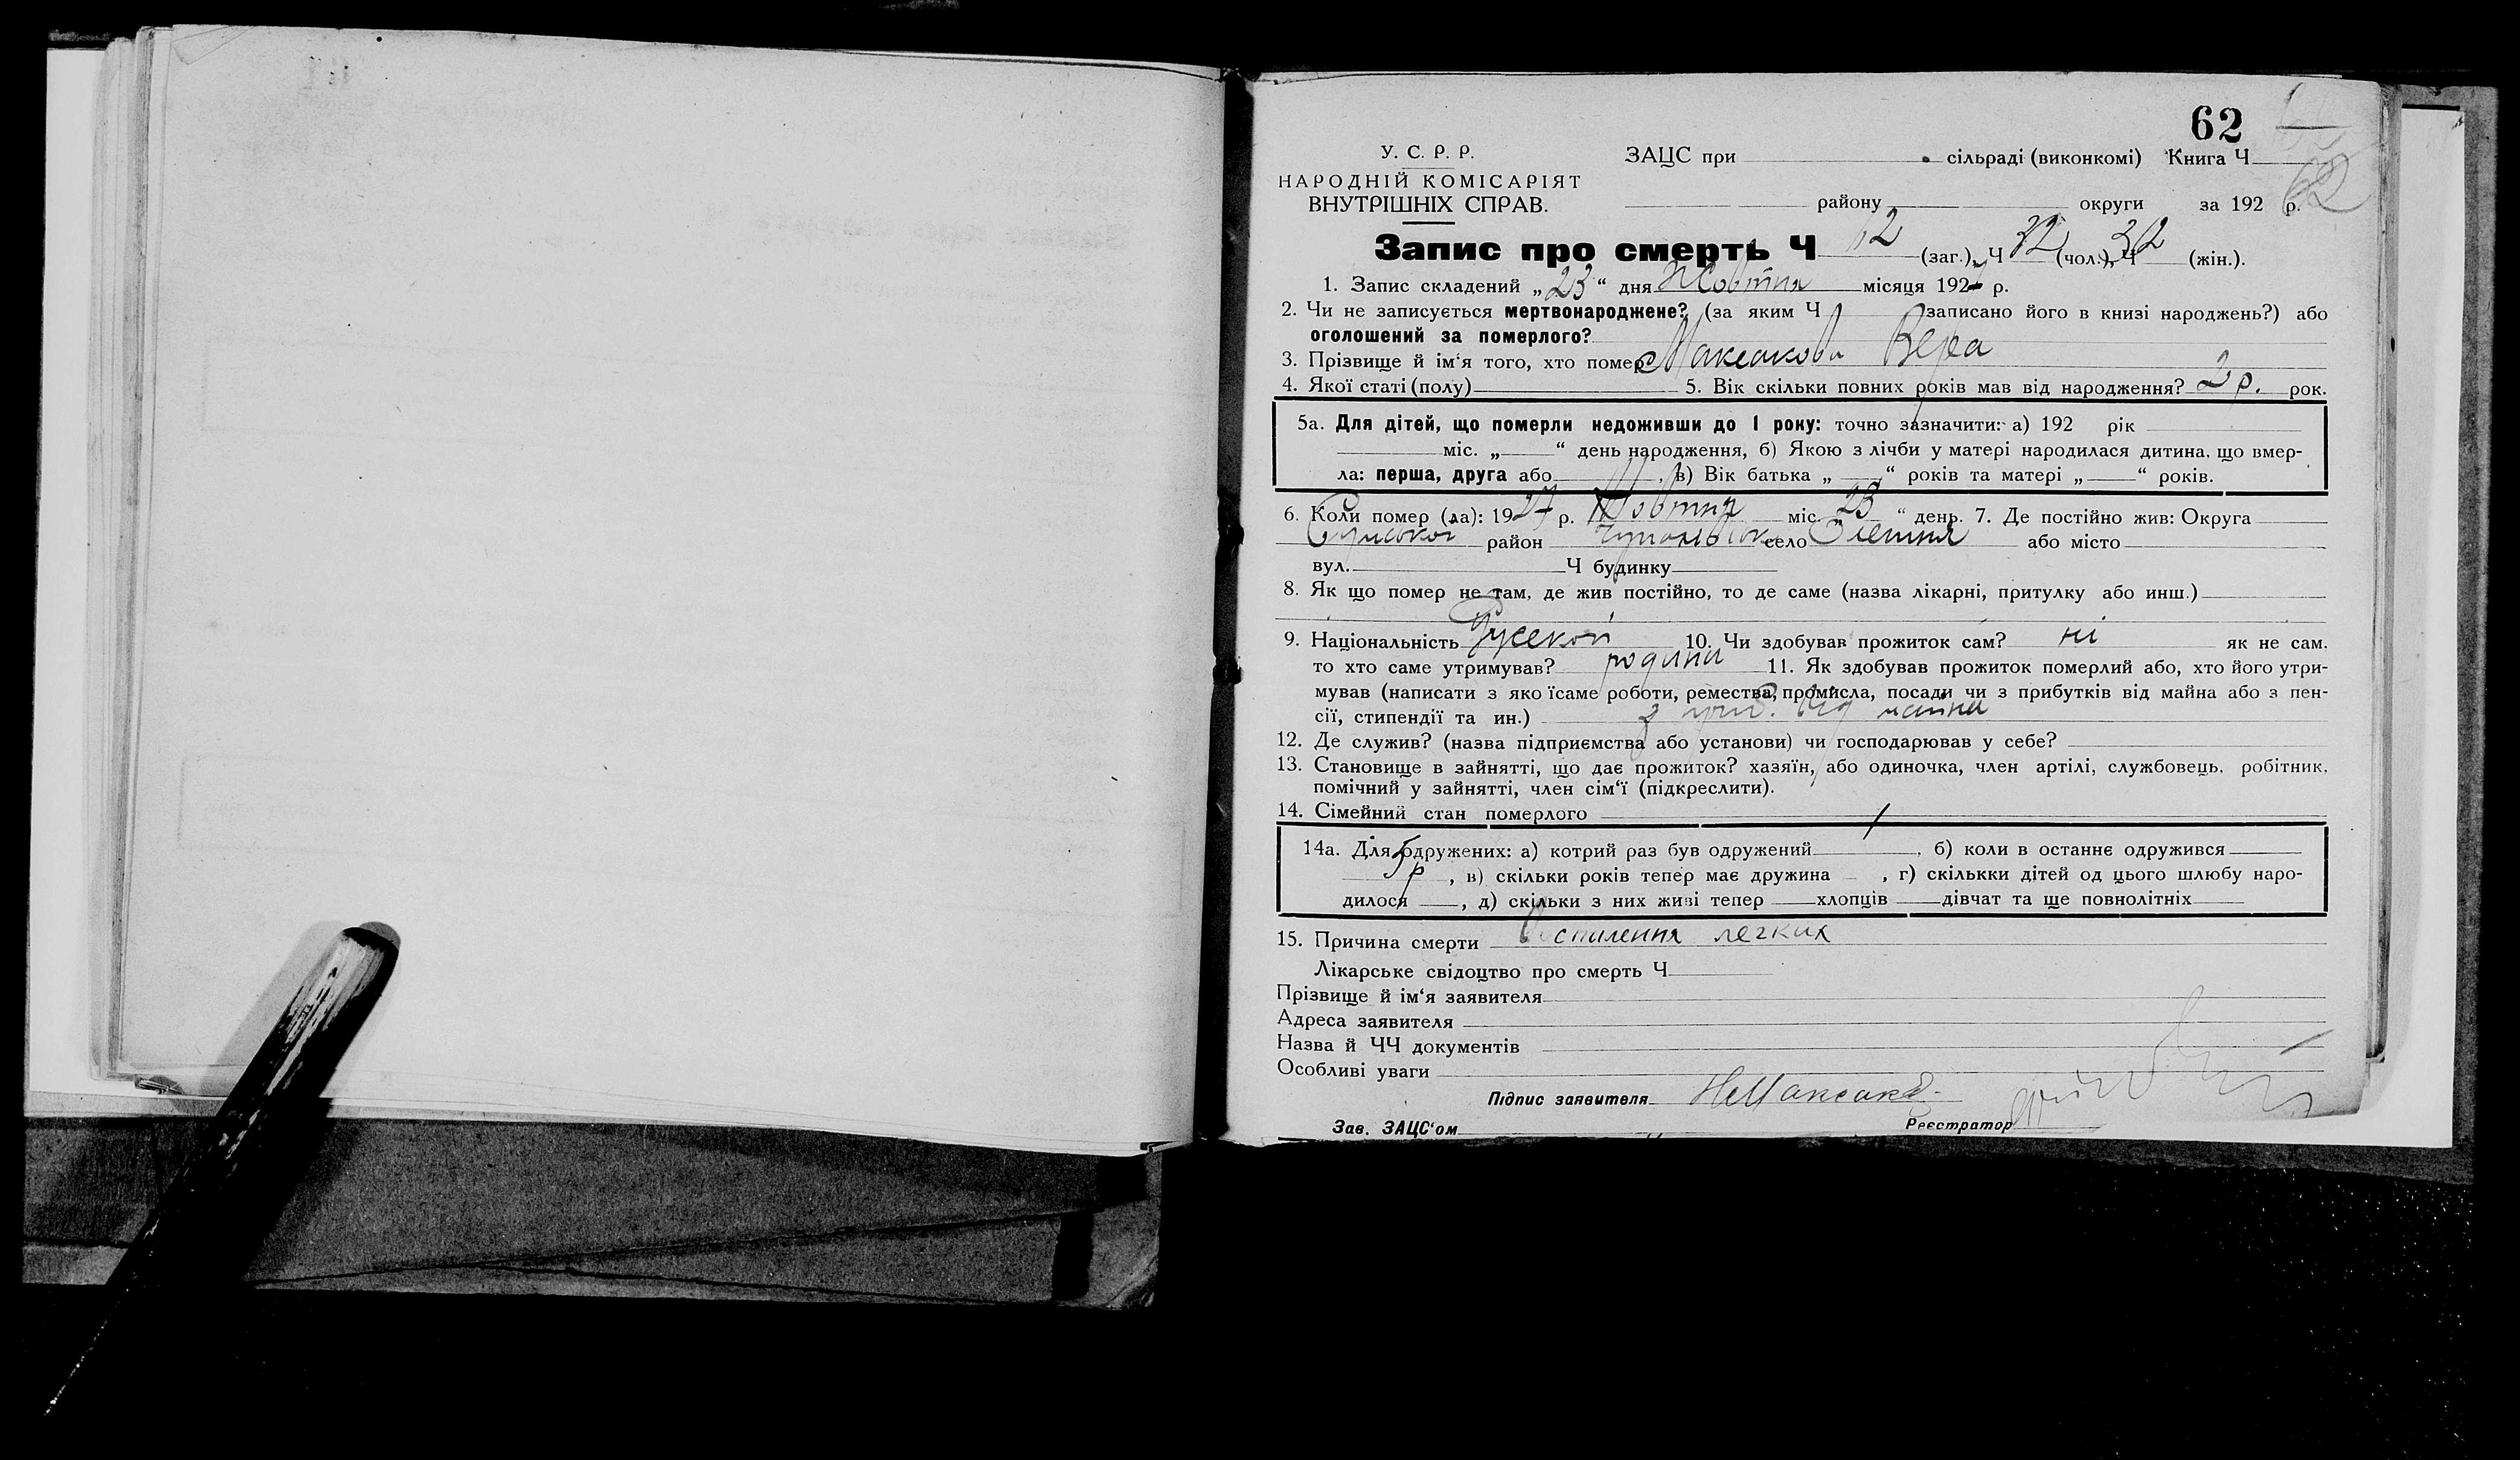 62
У. С. Р. Р.
ЗАЦС при сільраді (виконкомі) Книга Ч
НАРОДНІЙ КОМІСАРІЯТ
ВНУТРІШНІХ СПРАВ.
району округи за 192 р. 62
Запис про смерть Ч 62 (заг.), Ч 32 (чол.), Ч 32 (жін.).
1. Запис складений „23“ дня Жовтня місяця 1927 р.
2. Чи не записується мертвонароджене? (за яким Ч записано його в книзі народжень?) або
оголошений за померлого?
3. Прізвище й ім‘я того, хто помер Максакова Вера
4. Якої статі (полу) 5. Вік скільки повних років мав від народження? 2 р. рок.
5а. Для дітей, що померли недоживши до 1 року: точно зазначити: а) 192 рік
міс. „ “ день народження, б) Якою з лічби у матері народилася дитина, що вмер-
ла: перша, друга або , в) Вік батька „ “ років та матері „ “ років.
6. Коли помер (ла): 1927 р. Жовтня міс. „23“ день. 7. Де постійно жив: Округа
Сумської район село або місто
вул. Ч будинку
8. Як що помер не там, де жив постійно, то де саме (назва лікарні, притулку або инш.)
9. Національність Русской 10. Чи здобував прожиток сам? ні як не сам.
то хто саме утримував? родини 11. Як здобував прожиток померлий або, хто його утри-
мував (написати з яко їсаме роботи, ремества, промисла, посади чи з прибутків від майна або з пен-
сії, стипендії та ин.) з приб. від майна
12. Де служив? (назва підприємства або установи) чи господарював у себе?
13. Становище в зайнятті, що дає прожиток? хазяїн, або одиночка, член артілі, службовець, робітник,
помічний у зайнятті, член сім‘ї (підкреслити).
14. Сімейний стан померлого
14а. Для одружених: а) котрий раз був одружений , б) коли в останнє одружився
, в) скільки років тепер має дружина , г) скількки дітей од цього шлюбу наро-
дилося , д) скільки з них живі тепер хлопців дівчат та ще повнолітніх
15. Причина смерти Воспилення легких
Лікарське свідоцтво про смерть Ч
Прізвище й ім‘я заявителя
Адреса заявителя
Назва й ЧЧ документів
Особливі уваги
Підпис заявителя НМаксаков
Зав. ЗАЦС‘ом Реєстратор